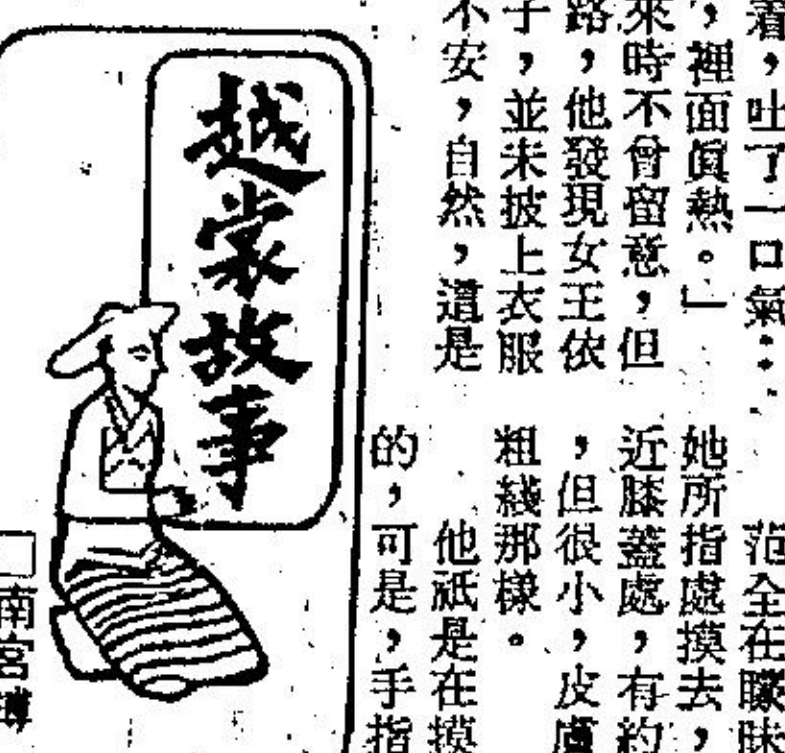 着，吐了一口氣…
，裡面眞熱。」
來時不曾留意，但
路，他發現女王依
子，並未披上衣服
不安，自然，這是
范全在矇昧
她所指處摸去，
近膝蓋處，有約
，但很小，皮膚
粗綫那樣。
他祇是在摸
的，可是，手指
越裳故事
□南宮搏